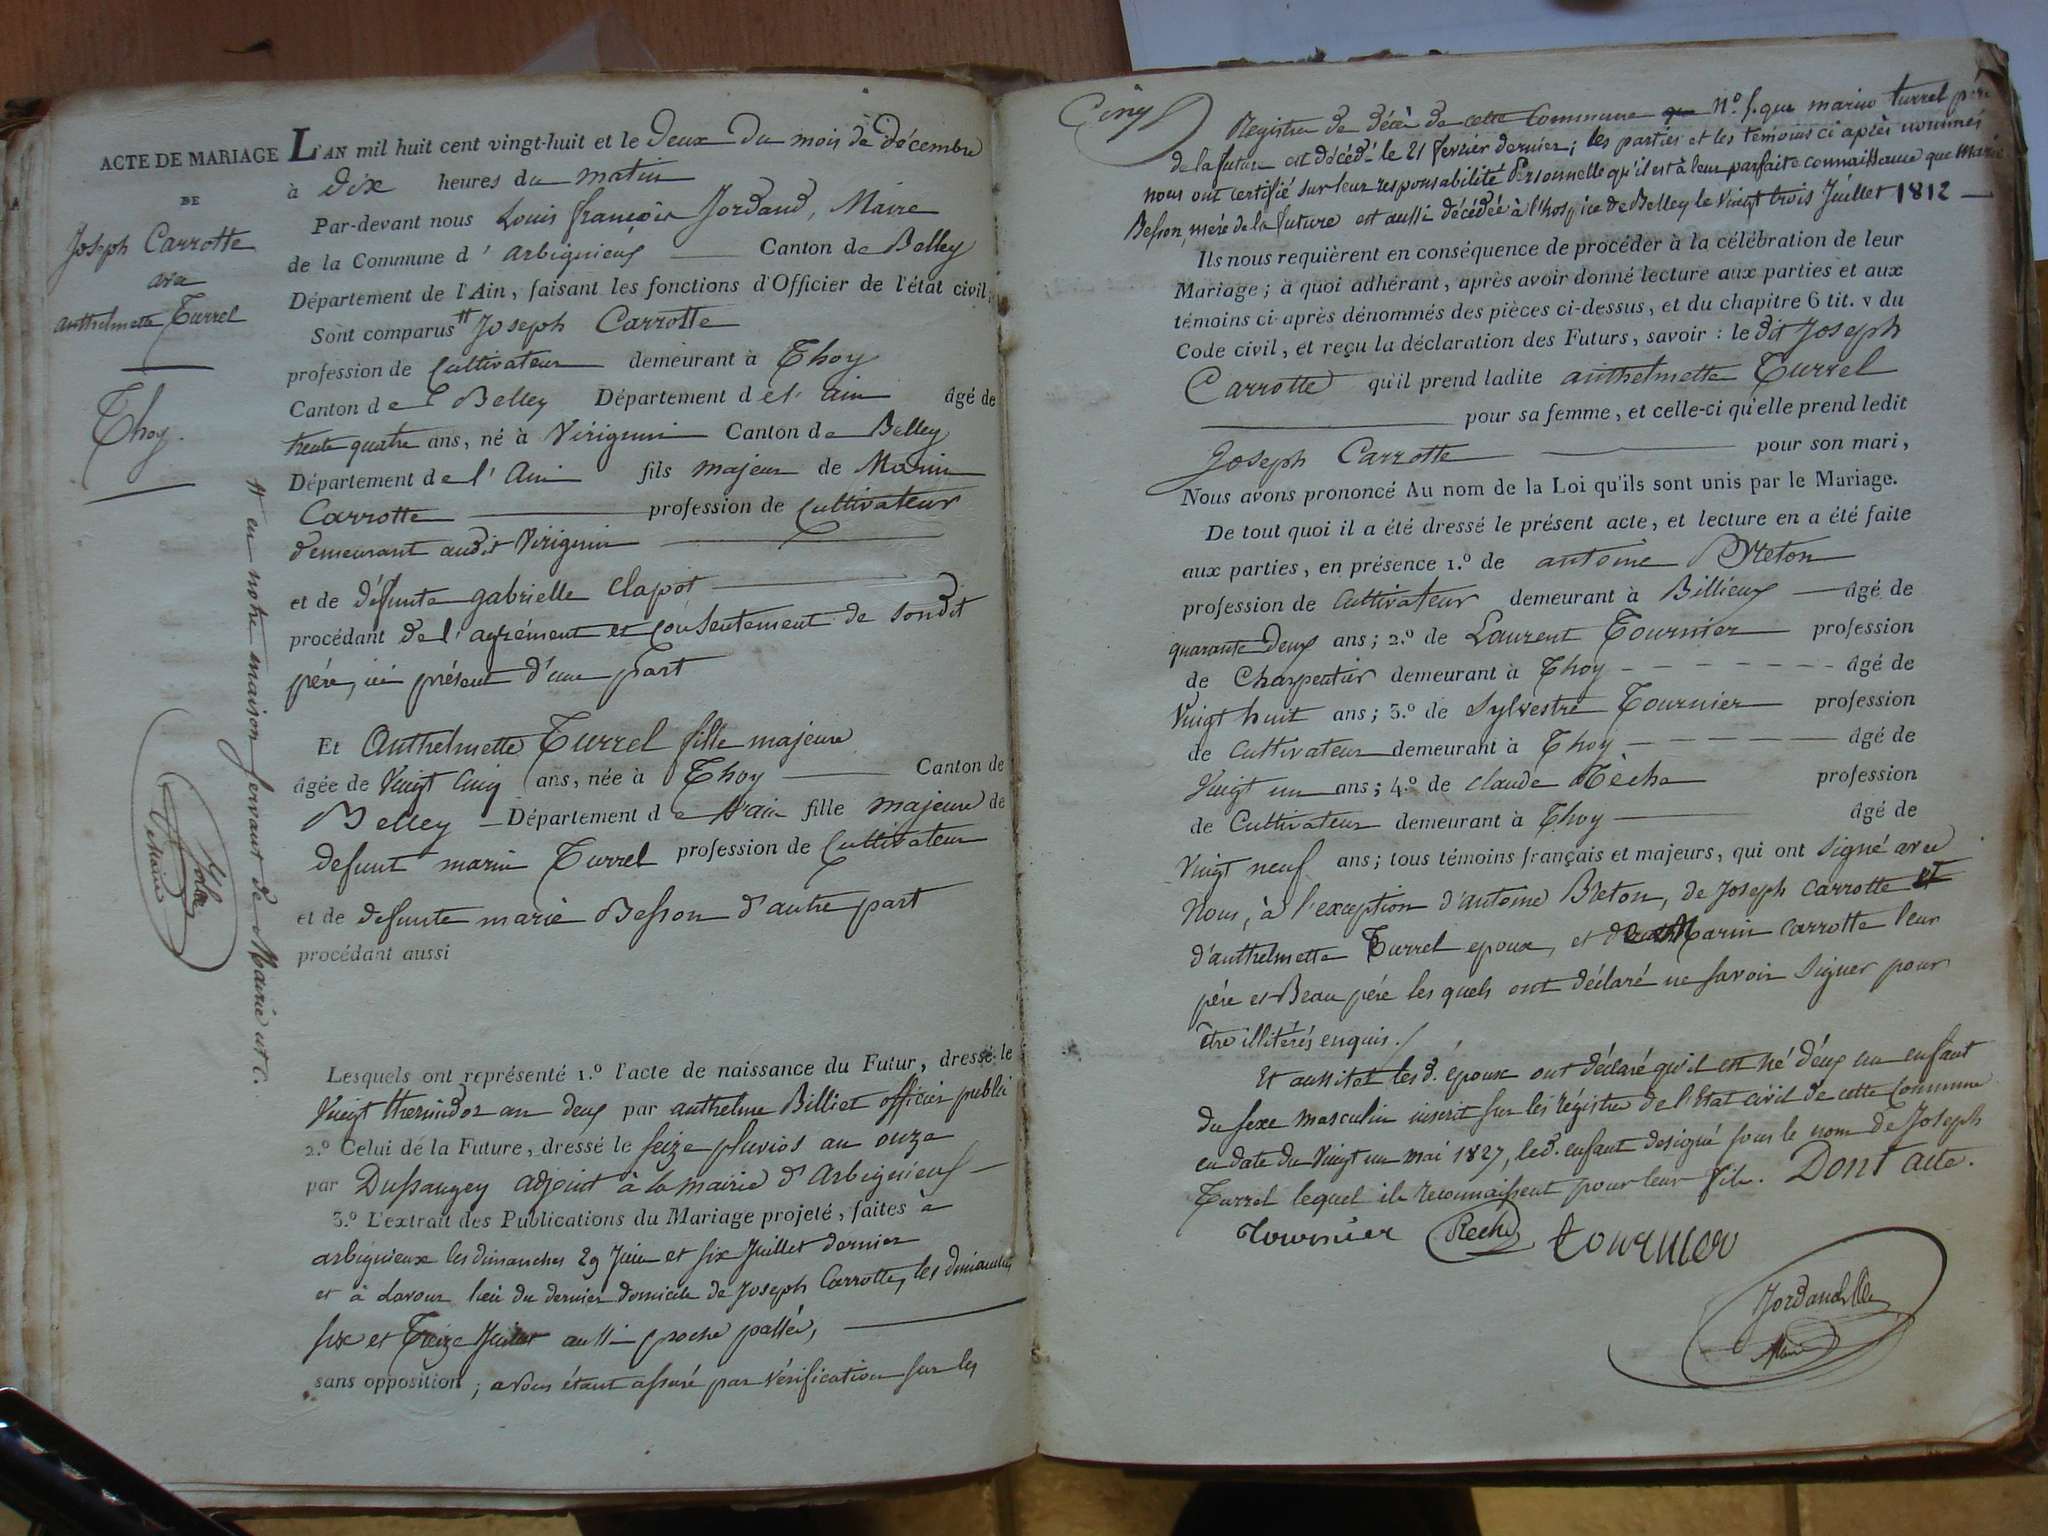 ACTE DE MARIAGE
DE
Joseph Carrotte
avec
anthelmette Turrel
Thoy.
L'AN mil huit cent vingt-huit et le Deux du mois de décembre
à Dix heures du matin
Par-devant nous Louis françois Jordand, Maire
de la Commune d'arbignieux Canton de Belley
Département de l'Ain, faisant les fonctions d'Officier de l'état civil;
Sont comparus # Joseph Carrotte
profession de Cultivateur demeurant à Thoy
Canton de Belley Département de l'ain âgé de
trente quatre ans, né à Virignin Canton de Belley
Département de l'Ain fils majeur de Marin
Carrotte profession de Cultivateur
demeurant audit Virignin
et de défunte gabrielle Clapot
procédant de l'agrément et Consentement de Sondit
père, ici présent d'une part
Et Anthelmette Turrel fille majeure
âgée de Vingt Cinq ans, née à Thoy Canton de
Belley Département de l'ain fille majeure de
defunt marin Turrel profession de Cultivateur
et de defunte marie Besson d'autre part
procédant aussi
Lesquels ont représenté 1.º l'acte de naissance du Futur, dressé le
Vingt thermidor an deux par anthelme Billiet officier public
2.º Celui de la Future, dressé le seize pluvios an onze
par Dussaugey adjoint à la mairie d'Arbignieux
3.º L'extrait des Publications du Mariage projeté, faites à
arbignieux les dimanches 29 Juin et six Juillet dernier
et à Lavour lieu du dernier domicile de Joseph Carrotte, les dimanches
six et Treize Juillet aussi proche passés,
sans opposition; a vous étant assuré par vérification sur les
# en notre maison servant de Mairie et C.
le Maire
Cinq
Registres de décès de cette Commune Nº 5. que marin turrel père
de la future est décédé le 21 fevrier dernier; les parties et les témoins ci après nommés
nous ont certifié sur leur responsabilité Personnelle qu'il est à leur parfaite connaissance que Marie
Besson, mère de la future est aussi décédée à l'hospice de Belley le Vingt trois Juillet 1812
Ils nous requièrent en conséquence de procéder à la célébration de leur
Mariage; à quoi adhérant, après avoir donné lecture aux parties et aux
témoins ci-après dénommés des pièces ci-dessus, et du chapitre 6 tit. v du
Code civil, et reçu la déclaration des Futurs, savoir: le dit Joseph
Carrotte qu'il prend ladite anthelmette Turrel
pour sa femme, et celle-ci qu'elle prend ledit
Joseph Carrotte pour son mari,
Nous avons prononcé Au nom de la Loi qu'ils sont unis par le Mariage.
De tout quoi il a été dressé le présent acte, et lecture en a été faite
aux parties, en présence 1.º de antoine Breton
profession de Cultivateur demeurant à Billieux âgé de
quarante Deux ans; 2.º de Laurent Tournier profession
de Charpentier demeurant à Thoy âgé de
Vingt huit ans; 3.º de Sylvestre Tournier profession
de Cultivateur demeurant à Thoy âgé de
Vingt un ans; 4.º de claude Rèche profession
de Cultivateur demeurant à Thoy âgé de
Vingt neuf ans; tous témoins français et majeurs, qui ont signé avec
Nous, à l'exception d'antoine Breton, de Joseph Carrotte et
d'anthelmette Turrel epoux, et de Marin Carrotte leur
père et Beau père les quels ont déclaré ne savoir signer pour
être illitérés enquis.
Et aussitot les d. époux ont déclaré qu'il est né d'eux un enfant
du sexe masculin inscrit sur les régistres de l'Etat civil de cette Commune
en date du Vingt un mai 1827, led. enfant designé sous le nom de Joseph
Turrel lequel ils reconnaissent pour leur fils. Dont acte.
Tournier Reche tournier
Jordand
Maire